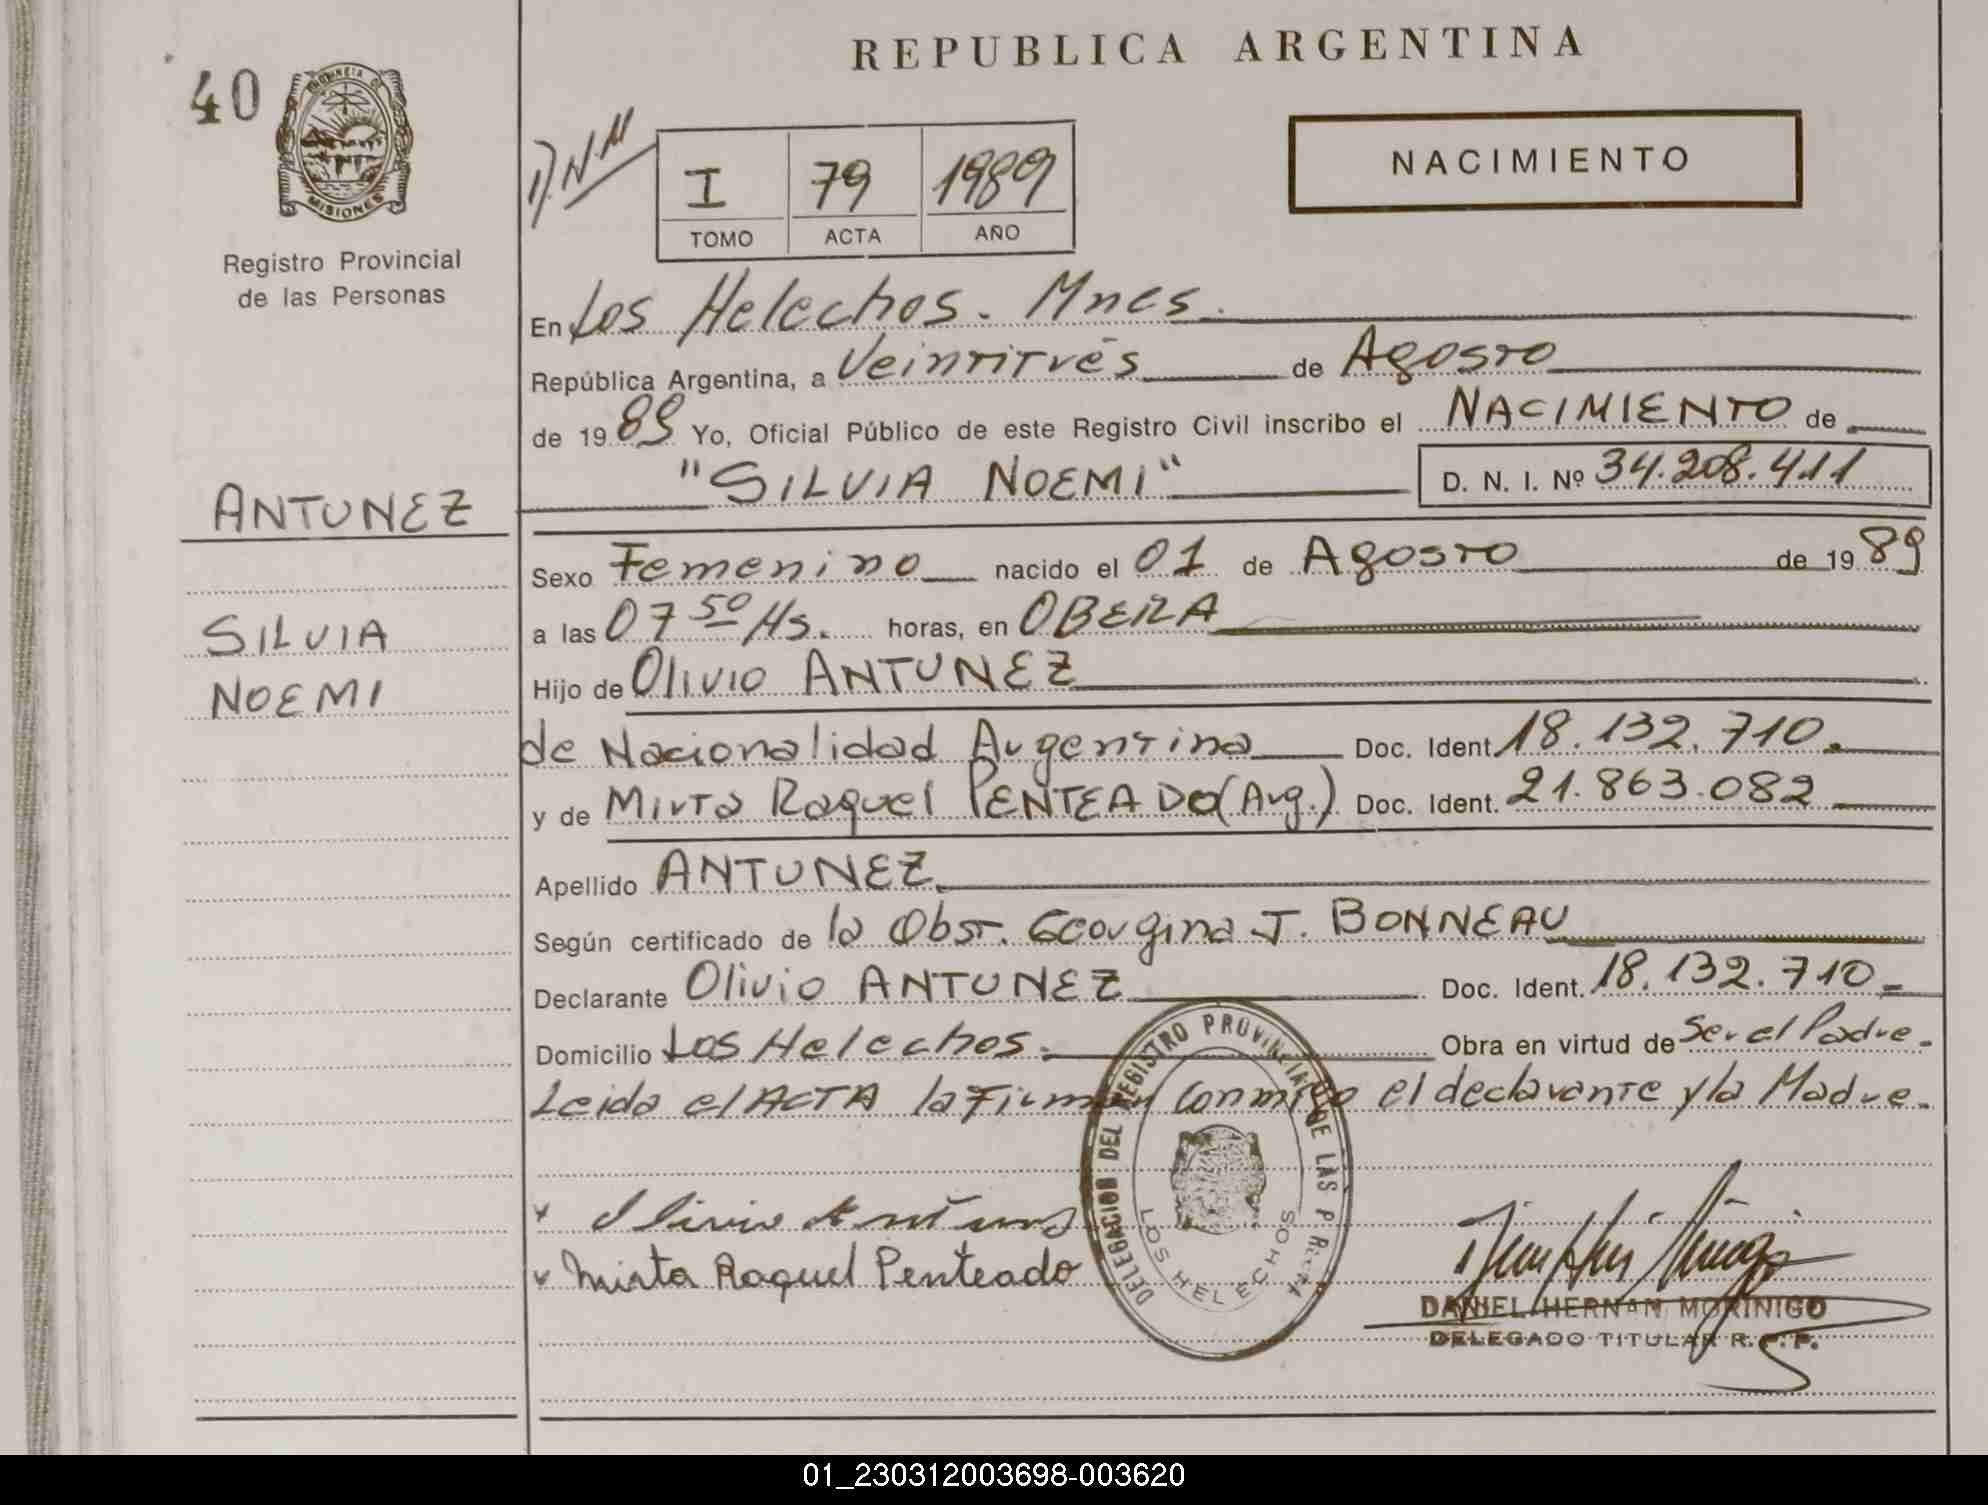 REPUBLICA ARGENTINA
40
PROVINCIA DE
MISIONES
Registro Provincial
de las Personas
D.N.M
I 79 1989
TOMO ACTA AÑO
NACIMIENTO
En Los Helechos. Mnes.
República Argentina, a Veintitrés de Agosto
de 1989 Yo, Oficial Público de este Registro Civil inscribo el NACIMIENTO de
"SILVIA NOEMI" D. N. I. Nº 34.208.411
ANTUNEZ
SILVIA
NOEMI
Sexo Femenino nacido el 01 de Agosto de 1989
a las 07 50 Hs. horas, en OBERA
Hijo de Olivio ANTUNEZ
de Nacionalidad Argentina Doc. Ident. 18.132.710.
y de Mirta Raquel PENTEADO (Arg.) Doc. Ident. 21.863.082
Apellido ANTUNEZ
Según certificado de la Obst. Georgina J. BONNEAU
Declarante Olivio ANTUNEZ Doc. Ident. 18.132.710
Domicilio Los Helechos. Obra en virtud de Ser el Padre.
Leida el ACTA la Firman conmigo el declarante y la Madre.
DELEGACION DEL REGISTRO PROVINCIAL DE LAS P
LOS HELECHOS
Mirta Raquel Penteado
DANIEL HERNAN MORINIGO
DELEGADO TITULAR R.P.P.
01_230312003698-003620